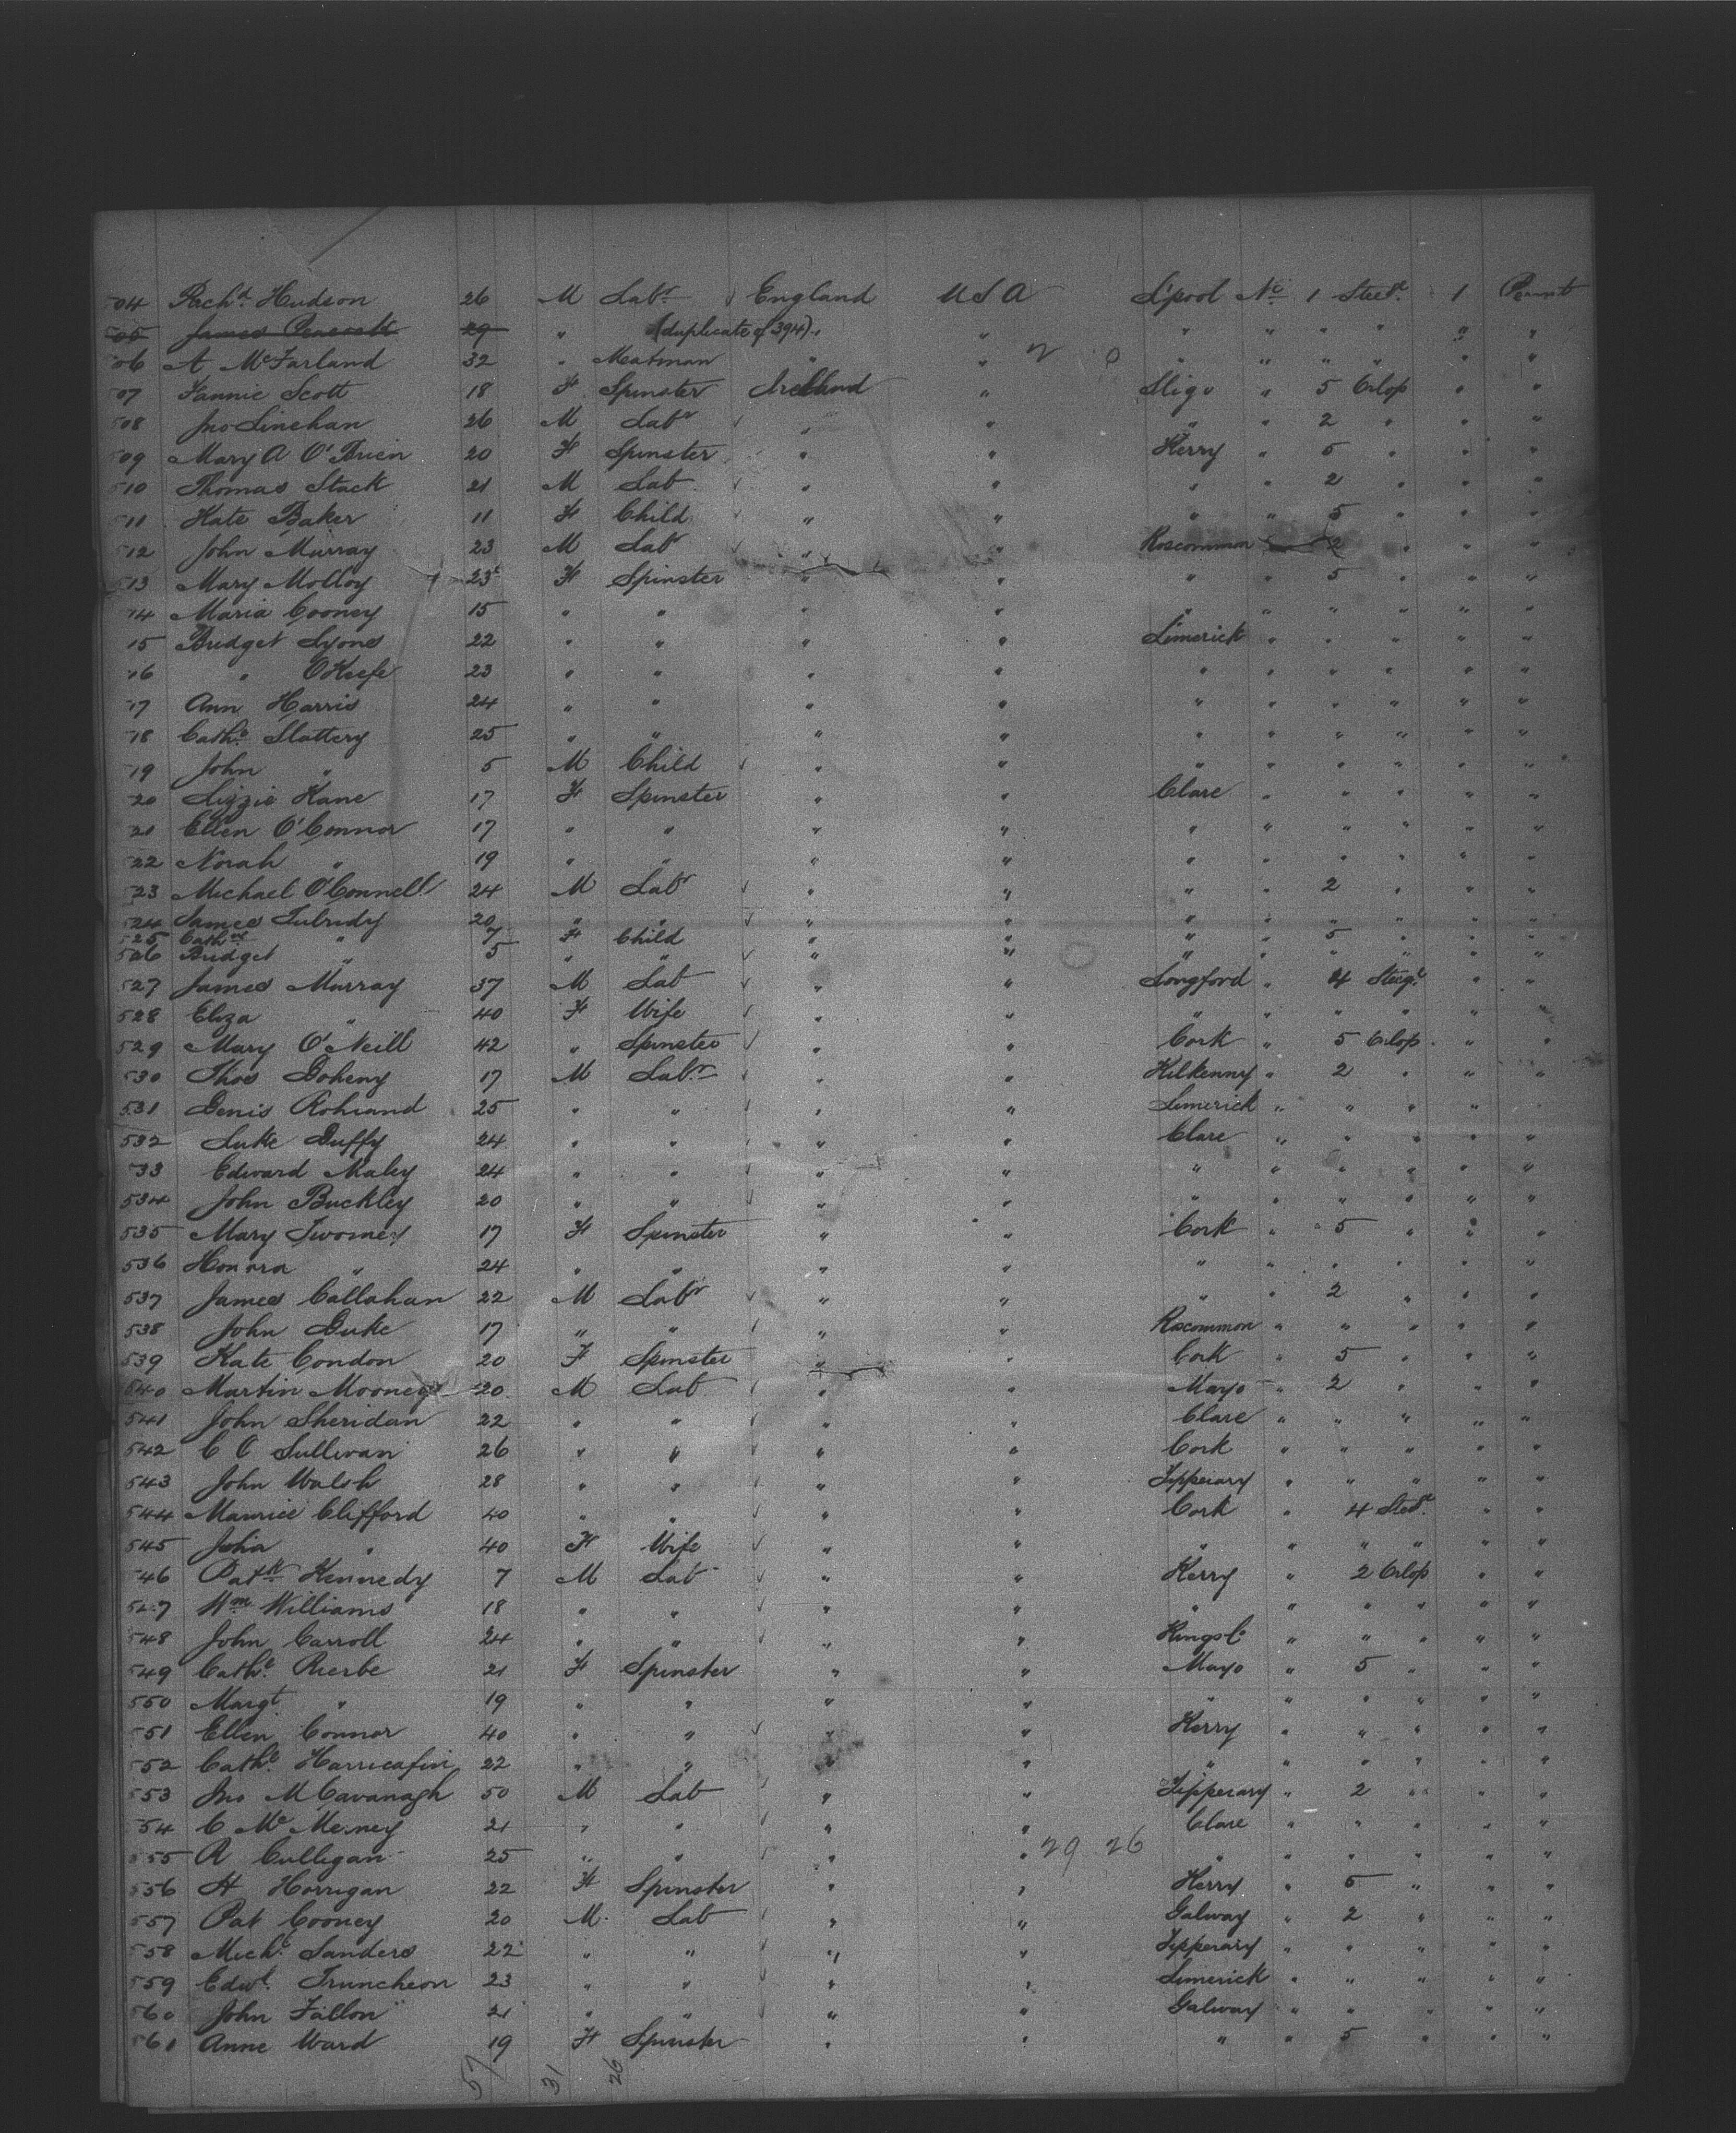 504 Rich^d Hudson 26 M Lab^r ✓ England U S A L'pool N^o 1 Steer^e 1 Permt
505 James Peacock 29 " (duplicate of 394) " " " " " " " "
06 A M^cFarland 32 " Meatman " " 2 0 " " " " " "
07 Fannie Scott 18 F Spinster Ireland " Sligo " 5 Orlop " "
508 Jno Linehan 26 M Lab^r ✓ " " " " 2 " " "
509 Mary A O'Brien 20 F Spinster " " Kerry " 5 " " "
510 Thomas Stack 21 M Lab ✓ " " " " 2 " " "
511 Kate Baker 11 F Child ✓ " " " " 5 " " "
512 John Murray 23 M Lab^r ✓ " " Roscommon 2 " " "
513 Mary Molloy 23 F Spinster " " " " 5 " " "
14 Maria Cooney 15 " " " " " " " " " "
15 Bridget Lyons 22 " " " " Limerick " " " " "
16 " O'Keefe 23 " " " " " " " " " "
17 Ann Harris 24 " " " " " " " " " "
18 Cath^e Slattery 25 " " " " " " " " " "
19 John " 5 M Child ✓ " " " " " " " "
20 Lizzie Kane 17 F Spinster " " Clare " " " " "
21 Ellen O'Connor 17 " " " " " " " " " "
22 Norah " 19 " " " " " " " " " "
523 Michael O'Connell 24 M Lab^r ✓ " " " " 2 " " "
524 James Tubridy 20 " " ✓ " " " " " " " "
525 Cath^ne " 7 F Child ✓ " " " " 5 " " "
526 Bridget " 5 " " ✓ " " " " " " " "
527 James Murray 37 M Lab ✓ " " Longford " 4 Steeg^e " "
528 Eliza " 40 F Wife ✓ " " " " " " " "
529 Mary O'Neill 42 " Spinster ✓ " " Cork " 5 Orlop " "
530 Thos Goheny 17 M Lab^r ✓ " " Kilkenny " 2 " " "
531 Denis 25 " " ✓ " " Limerick " " " " "
532 Luke Duffy 24 " " ✓ " " Clare " " " " "
533 Edward Maley 24 " " ✓ " " " " " " " "
534 John Buckley 20 " " ✓ " " " " " " " "
535 Mary Twomey 17 F Spinster " " Cork " 5 " " "
536 Honora " 24 " " " " " " " " " "
537 James Callahan 22 M Lab^r ✓ " " " " 2 " " "
538 John Duke 17 " " ✓ " " Roscommon " " " " "
539 Kate Condon 20 F Spinster " " Cork " 5 " " "
540 Martin Mooney 20 M Lab ✓ " " Mayo " 2 " " "
541 John Sheridan 22 " " ✓ " " Clare " " " " "
542 C O Sullivan 26 " " ✓ " " Cork " " " " "
543 John Walsh 28 " " ✓ " " Tipperary " " " " "
544 Maurice Clifford 40 " " ✓ " " Cork " 4 Steer^e " "
545 Julia " 40 F Wife ✓ " " " " " " " "
546 Pat^k Kennedy 7 M Lab ✓ " " Kerry " 2 Orlop " "
547 W^m Williams 18 " " ✓ " " " " " " " "
548 John Carroll 24 " " ✓ " " Kings C^o " " " " "
549 Cath^e 21 F Spinster " " Mayo " 5 " " "
550 Margt " 19 " " " " " " " " " "
551 Ellen Connor 40 " " ✓ " " Kerry " " " " "
552 Cath^e 22 " " " " " " " " " "
553 Jno M Cavanagh 50 M Lab ✓ " " Tipperary " 2 " " "
554 C M^c 21 " " ✓ " " Clare " " " " "
555 R Culligan 25 " " ✓ " " 29 26 " " " " " "
556 H Horrigan 22 F Spinster " " Kerry " 5 " " "
557 Pat Cooney 20 M Lab ✓ " " Galway " 2 " " "
558 Mich^l Sanders 22 " " ✓ " " Tipperary " " " " "
559 Edw^d Truncheon 23 " " ✓ " " Limerick " " " " "
560 John Fallon 21 " " ✓ " " Galway " " " " "
561 Anne Ward 19 F Spinster " " " " 5 " " "
57 31 26